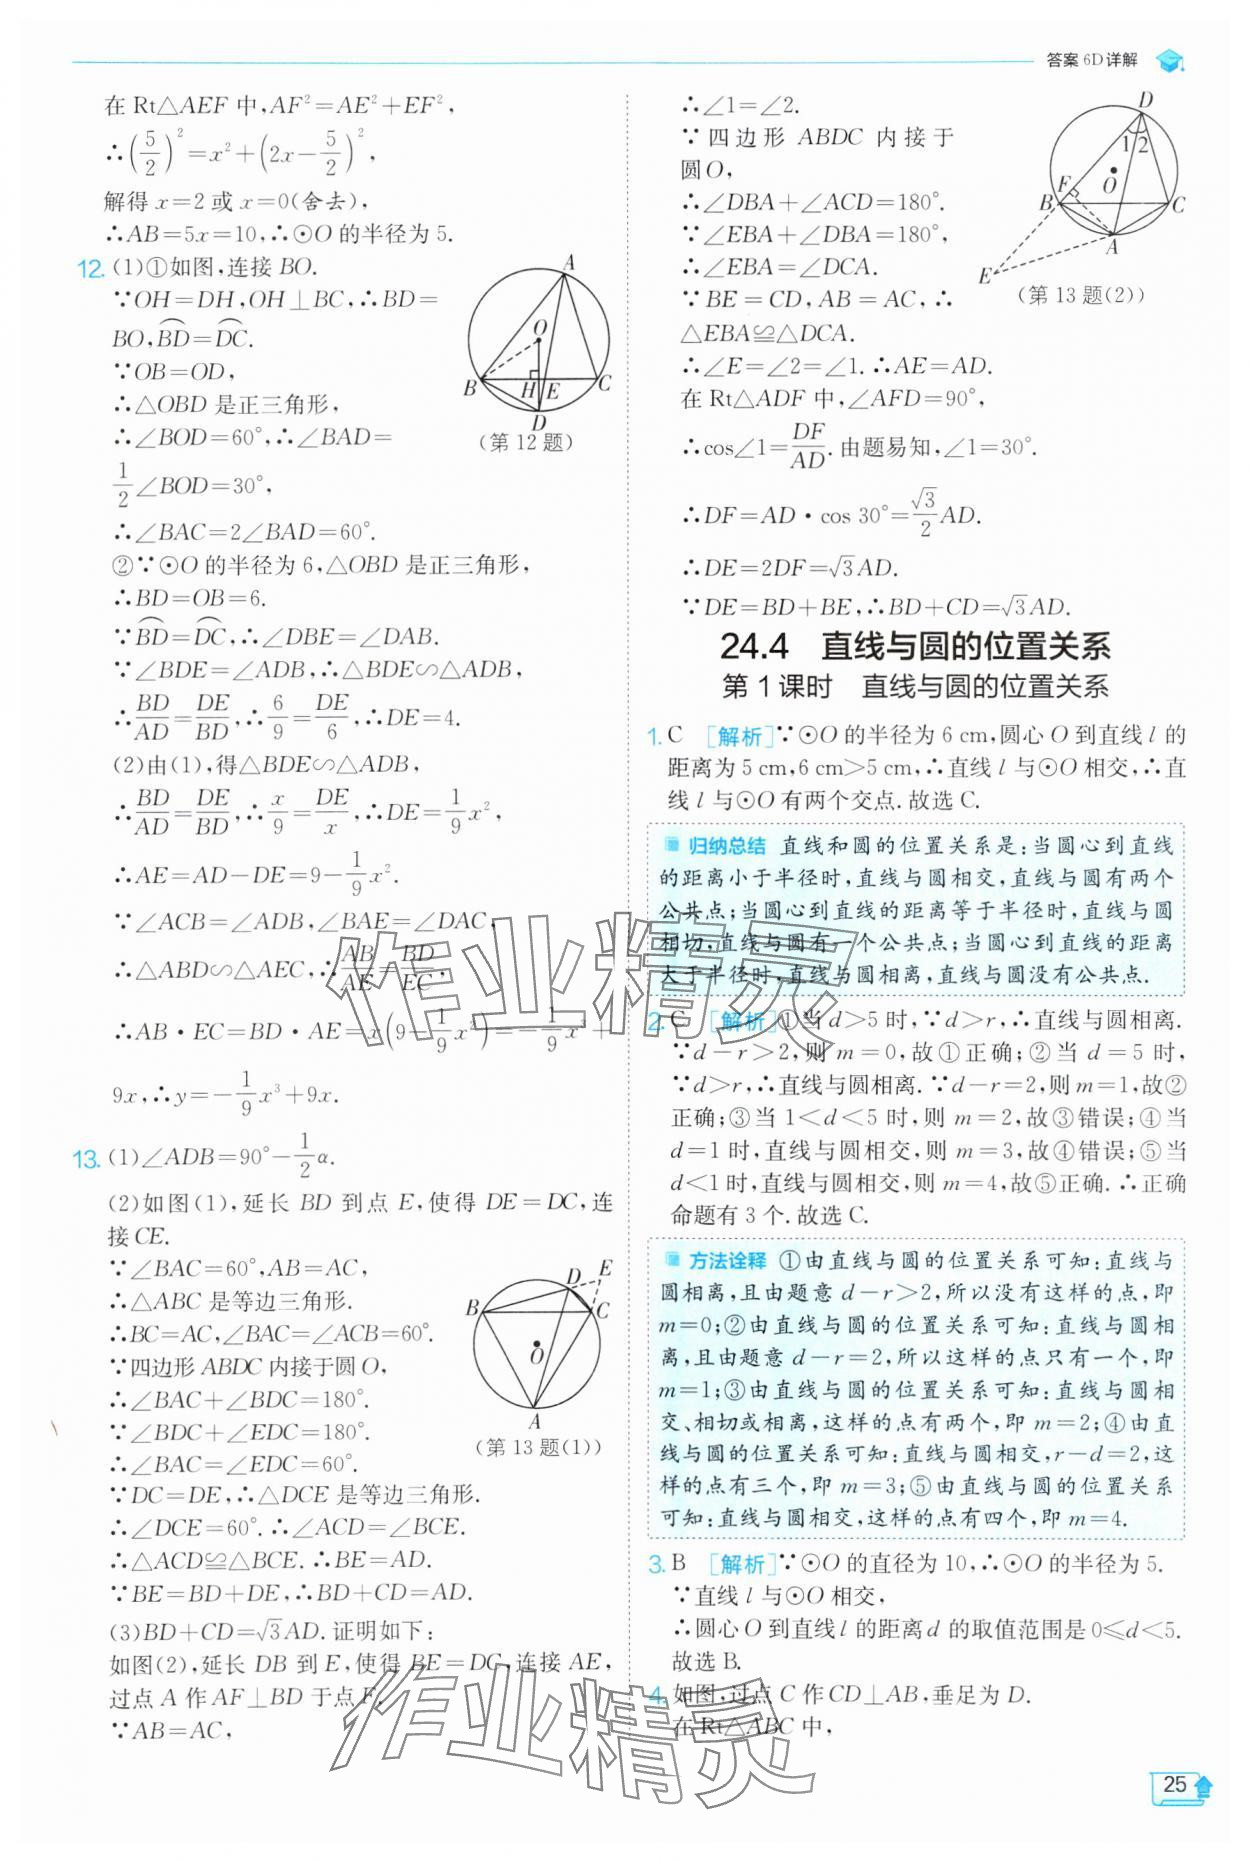 答案 6D 详解
在 Rt△AEF 中,AF²=AE²+EF²,
∴(5/2)²=x²+(2x-5/2)²,
解得 x=2 或 x=0(舍去),
∴AB=5x=10,∴⊙O 的半径为 5.
12. (1)①如图,连接 BO.
∵OH=DH,OH⊥BC,∴BD=
BO,⌒BD=⌒DC.
∵OB=OD,
∴△OBD 是正三角形,
∴∠BOD=60°,∴∠BAD=
1/2∠BOD=30°,
∴∠BAC=2∠BAD=60°.
A
O
B
H
E
C
D
(第 12 题)
②∵⊙O 的半径为 6,△OBD 是正三角形,
∴BD=OB=6.
∵⌒BD=⌒DC,∴∠DBE=∠DAB.
∵∠BDE=∠ADB,∴△BDE∽△ADB,
∴BD/AD=DE/BD,∴6/9=DE/6,∴DE=4.
(2)由(1),得△BDE∽△ADB,
∴BD/AD=DE/BD,∴x/9=DE/x,∴DE=1/9x²,
∴AE=AD-DE=9-1/9x².
∵∠ACB=∠ADB,∠BAE=∠DAC,
∴△ABD∽△AEC,∴AB/AE=BD/EC,
∴AB·EC=BD·AE=x(9-1/9x²)=-1/9x³+
9x,∴y=-1/9x³+9x.
13. (1)∠ADB=90°-1/2α.
(2)如图(1),延长 BD 到点 E,使得 DE=DC,连
接 CE.
∵∠BAC=60°,AB=AC,
∴△ABC 是等边三角形.
∴BC=AC,∠BAC=∠ACB=60°.
∵四边形 ABDC 内接于圆 O,
∴∠BAC+∠BDC=180°.
∵∠BDC+∠EDC=180°.
∴∠BAC=∠EDC=60°.
D
E
B
C
O
A
(第 13 题(1))
∵DC=DE,∴△DCE 是等边三角形.
∴∠DCE=60°.∴∠ACD=∠BCE.
∴△ACD≌△BCE.∴BE=AD.
∵BE=BD+DE,∴BD+CD=AD.
(3)BD+CD=√3AD.证明如下:
如图(2),延长 DB 到 E,使得 BE=DC,连接 AE,
过点 A 作 AF⊥BD 于点 F.
∵AB=AC,
∴∠1=∠2.
∵四边形 ABDC 内接于
圆 O,
∴∠DBA+∠ACD=180°.
∵∠EBA+∠DBA=180°,
∴∠EBA=∠DCA.
∵BE=CD,AB=AC,∴
△EBA≌△DCA.
D
1
2
F
O
B
C
A
E
(第 13 题(2))
∴∠E=∠2=∠1.∴AE=AD.
在 Rt△ADF 中,∠AFD=90°,
∴cos∠1=DF/AD.由题易知,∠1=30°.
∴DF=AD·cos 30°=√3/2AD.
∴DE=2DF=√3AD.
∵DE=BD+BE,∴BD+CD=√3AD.
24.4 直线与圆的位置关系
第 1 课时 直线与圆的位置关系
1. C [解析]∵⊙O 的半径为 6 cm,圆心 O 到直线 l 的
距离为 5 cm,6 cm>5 cm,∴直线 l 与⊙O 相交,∴直
线 l 与⊙O 有两个交点.故选 C.
归纳总结 直线和圆的位置关系是:当圆心到直线
的距离小于半径时,直线与圆相交,直线与圆有两个
公共点;当圆心到直线的距离等于半径时,直线与圆
相切,直线与圆有一个公共点;当圆心到直线的距离
大于半径时,直线与圆相离,直线与圆没有公共点.
2. C [解析]①当 d>5 时,∵d>r,∴直线与圆相离.
∵d-r>2,则 m=0,故①正确;②当 d=5 时,
∵d>r,∴直线与圆相离.∵d-r=2,则 m=1,故②
正确;③当 1<d<5 时,则 m=2,故③错误;④当
d=1 时,直线与圆相交,则 m=3,故④错误;⑤当
d<1 时,直线与圆相交,则 m=4,故⑤正确.∴正确
命题有 3 个.故选 C.
方法诠释 ①由直线与圆的位置关系可知:直线与
圆相离,且由题意 d-r>2,所以没有这样的点,即
m=0;②由直线与圆的位置关系可知:直线与圆相
离,且由题意 d-r=2,所以这样的点只有一个,即
m=1;③由直线与圆的位置关系可知:直线与圆相
交、相切或相离,这样的点有两个,即 m=2;④由直
线与圆的位置关系可知:直线与圆相交,r-d=2,这
样的点有三个,即 m=3;⑤由直线与圆的位置关系
可知:直线与圆相交,这样的点有四个,即 m=4.
3. B [解析]∵⊙O 的直径为 10,∴⊙O 的半径为 5.
∵直线 l 与⊙O 相交,
∴圆心 O 到直线 l 的距离 d 的取值范围是 0≤d<5.
故选 B.
4. 如图,过点 C 作 CD⊥AB,垂足为 D.
在 Rt△ABC 中,
作业精灵
作业精灵
25